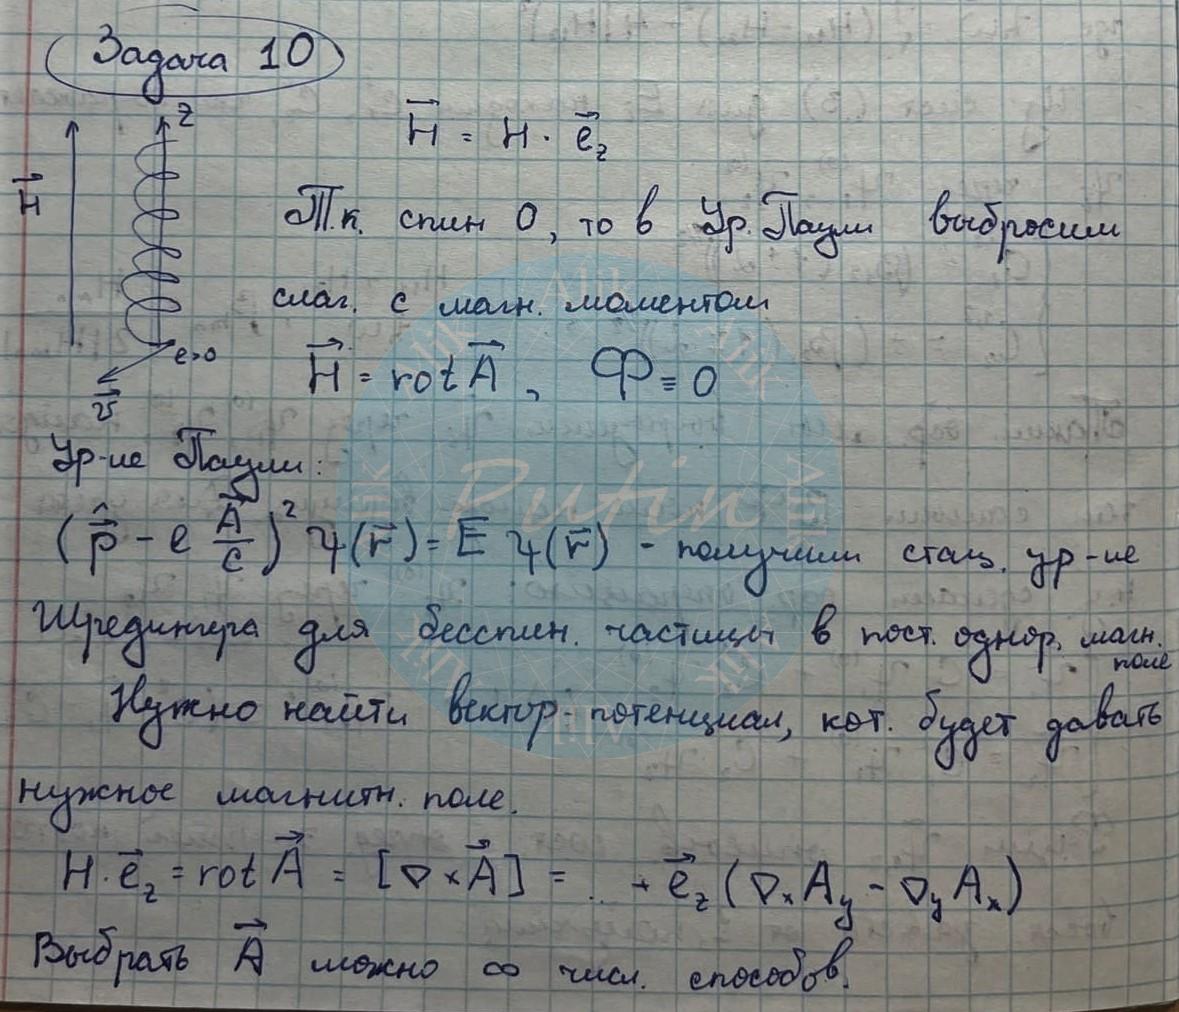 Задача 10
z
H
H = H · e_z
Т.к. спин 0, то в Ур. Паули выбросим
слаг. с магн. моментом
e>0
v
H = rot A, Φ ≡ 0
Ур-ие Паули:
(p̂ - e A/c)² ψ(r) = E ψ(r) - получили стац. ур-ие
Шредингера для бесспин. частицы в пост. однор. магн.
поле
Нужно найти вектор-потенциал, кот. будет давать
нужное магнитн. поле.
H · e_z = rot A = [∇ × A] = .. + e_z (∇_x A_y - ∇_y A_x)
Выбрать A можно ∞ числ. способов.
Putin
Alik
Alik
Alik
Alik
Alik
Alik
Alik
Alik